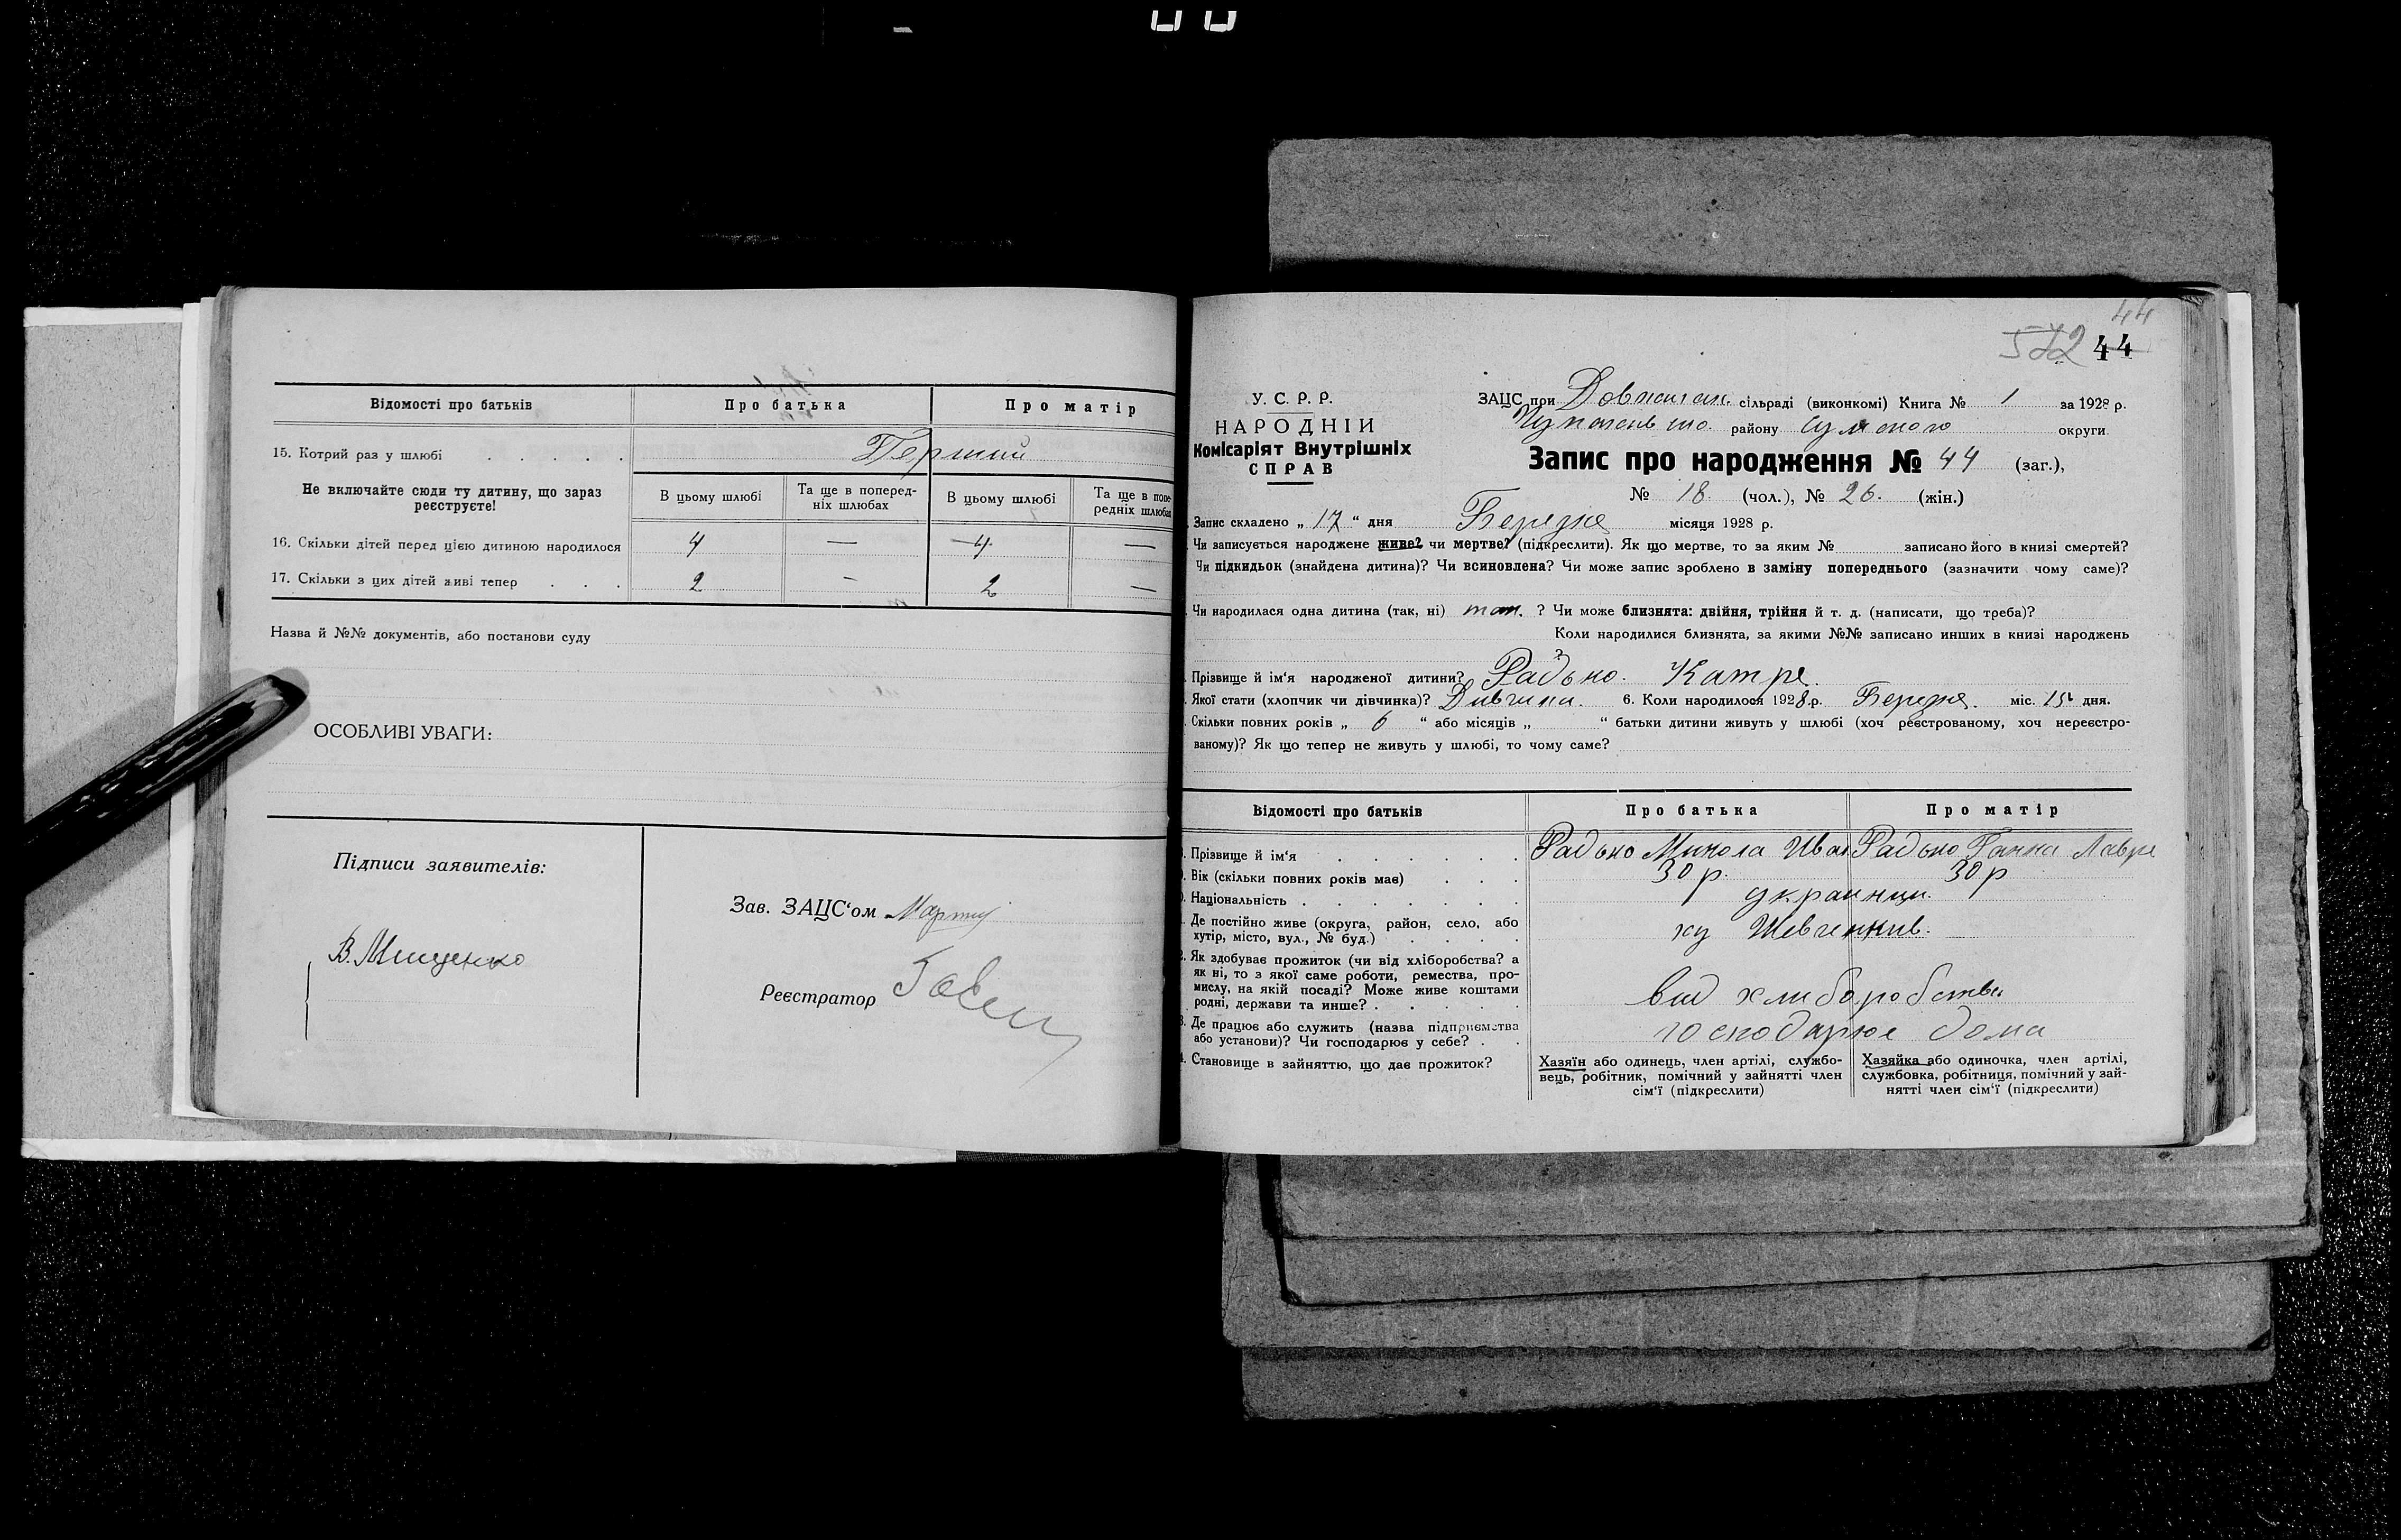 Відомості про батьків
Про батька
Про матір
15. Котрий раз у шлюбі . . . . .
Перший
Не включайте сюди ту дитину, що зараз реєструєте!
В цьому шлюбі
Та ще в поперед-
ніх шлюбах
В цьому шлюбі
Та ще в попе-
редніх шлюбах
16. Скільки дітей перед цією дитиною народилося 4 — 4 —
17. Скільки з цих дітей живі тепер . . . 2 - 2 —
Назва й №№ документів, або постанови суду
ОСОБЛИВІ УВАГИ:
Підписи заявителів:
В. Мищенко
Зав. ЗАЦС‘ом
Реєстратор
44
572 44
У. С. Р. Р.
НАРОДНІЙ
Комісаріят Внутрішніх
СПРАВ
ЗАЦС при сільраді (виконкомі) Книга № 1 за 1928 р.
району Сумского округи
Запис про народження № 44 (заг.),
№ 18. (чол.), № 26. (жін.)
Запис складено „ 17 “ дня Березня місяця 1928 р.
Чи записується народжене живе? чи мертве? (підкреслити). Як що мертве, то за яким № записано його в книзі смертей?
Чи підкидьок (знайдена дитина)? Чи всиновлена? Чи може запис зроблено в заміну попереднього (зазначити чому саме)?
Чи народилася одна дитина (так, ні) так. ? Чи може близнята: двійня, трійня й т. д. (написати, що треба)?
Коли народилися близнята, за якими №№ записано инших в книзі народжень
Прізвище й ім‘я народженої дитини? Радько. Катря.
Якої стати (хлопчик чи дівчинка)? Дивчина. 6. Коли народилося 1928.р. Березня. міс. 15 дня.
Скільки повних років „ 6 “ або місяців „ “ батьки дитини живуть у шлюбі (хоч реєстрованому, хоч нереєстро-
ваному)? Як що тепер не живуть у шлюбі, то чому саме?
Відомості про батьків
Про батька
Про матір
Прізвище й ім‘я . . . . . . Радько Микола Иван Радько Ганна Лавре
Вік (скільки повних років має) . . . 30 р. 30 р
Національність . . . . . . . украинци.
Де постійно живе (округа, район, село, або
хутір, місто, вул., № буд.) . . . .
ху Шевченків.
Як здобуває прожиток (чи від хліборобства? а
як ні, то з якої саме роботи, ремества, про-
мислу, на якій посаді? Може живе коштами
родні, держави та инше? . . . . .
вид хлиборобства
Де працює або служить (назва підприємства
або установи)? Чи господарює у себе? . .
господарює дома
Становище в зайняттю, що дає прожиток?
Хазяїн або одинець, член артілі, службо-
вець, робітник, помічний у зайнятті член
сім‘ї (підкреслити)
Хазяйка або одиночка, член артілі,
службовка, робітниця, помічний у зай-
нятті член сім‘ї (підкреслити)